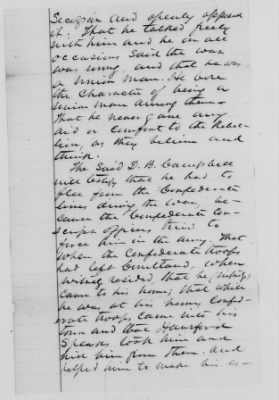 Secession and openly opposed
it. That he talked freely
with him and he on all
occasions said the war
was wrong and that he was
a Union man. He bore
the character of being a
Union man among them.
That he never gave any
aid or comfort to the Rebel-
lion, as they believe and
think.
The said D. B. Campbell
will testify that he had to
flee from the Confederate
lines during the war, be-
cause the Confederate con-
script officers tried to
force him in the army. That
when the Confederate troops
had left Courtland, where
witness resided that he, witness,
came to his home; that while
he was at his home, Confed-
erate troops came into his
town and that Hansford
Speaks took him and
hid him from them. And
helped him to make his es-